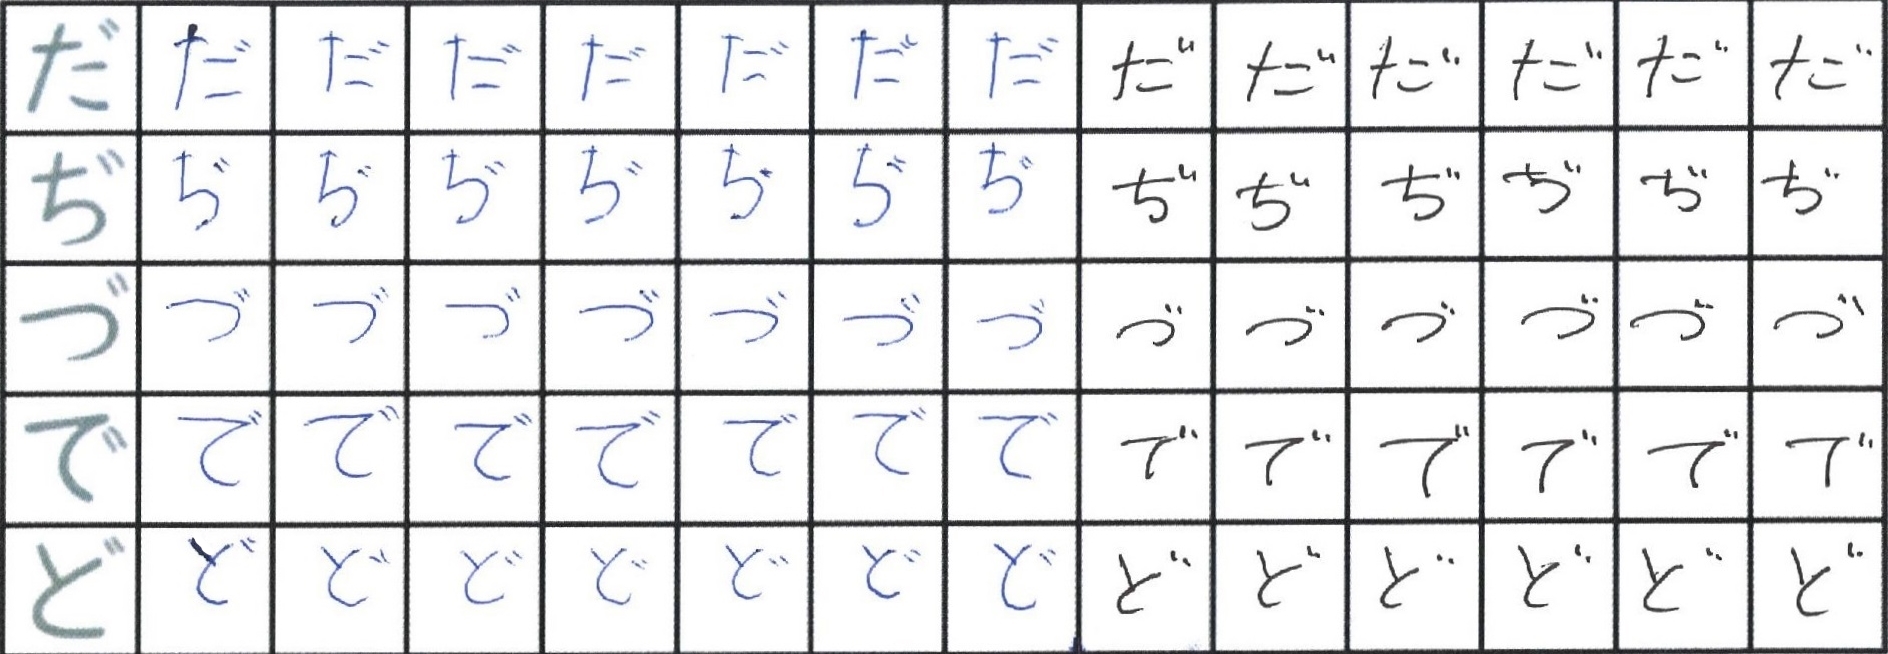 だ だ だ だ だ だ だ だ だ だ だ だ だ だ
ぢ ぢ ぢ ぢ ぢ ぢ ぢ ぢ ぢ ぢ ぢ ぢ ぢ ぢ
づ づ づ づ づ づ づ づ づ づ づ づ づ づ
で で で で で で で で で で で で で で
ど ど ど ど ど ど ど ど ど ど ど ど ど ど